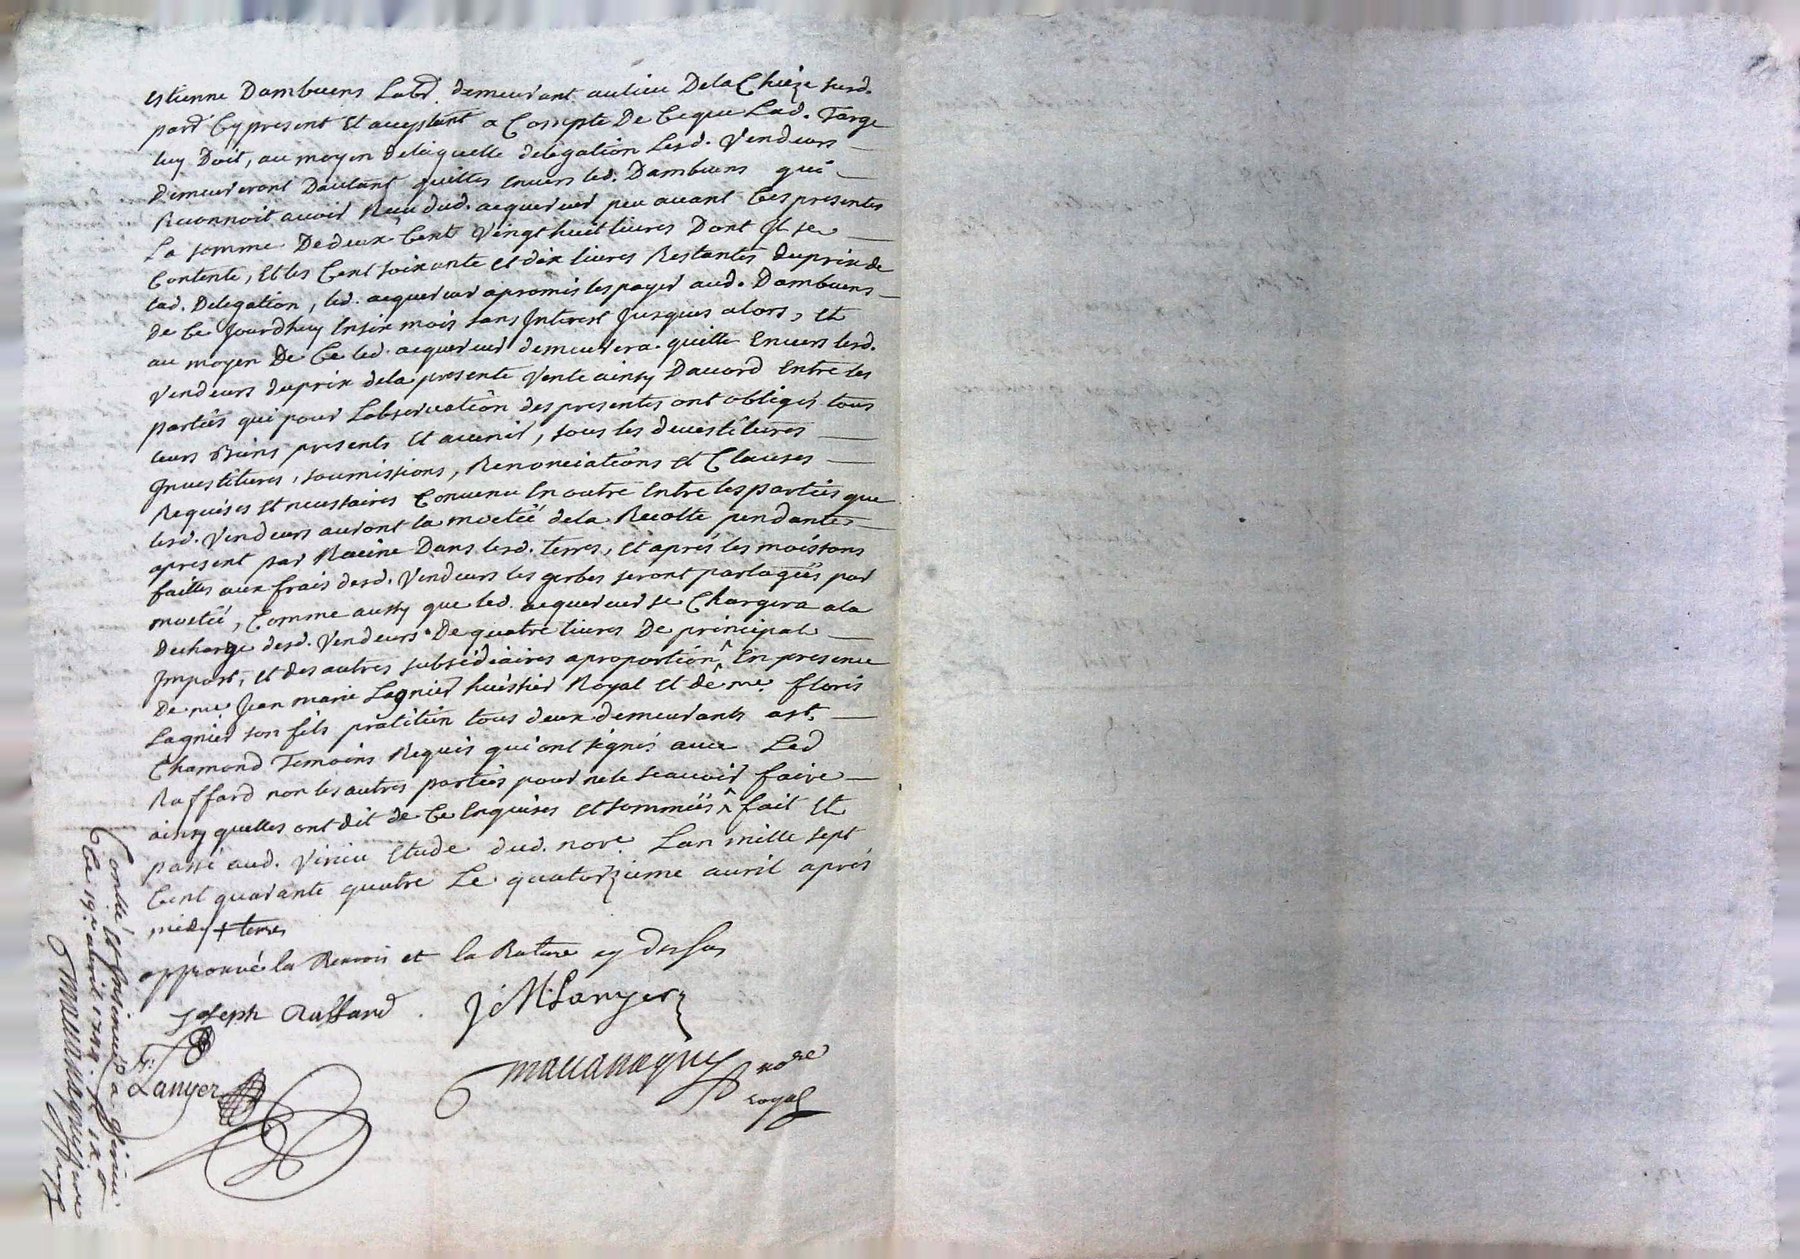 estienne Dambuens Labr. demeurant au lieu De la Chieze susd.
parr. Cy present Et acceptant a Compte De Ce que Lad. Farge
luy Doit, au moyen delaquelle delegation Lesd. Vendeurs
Demeureront Dautant quittes envers led. Dambuens qui
Reconnoit avoir Receu dud. acquereur peu avant Ces presentes
La somme De deux Cent Vingt huit livres Dont Il se
Contente, Et les Cent soixante et dix livres Restantes du prix de
lad. Delegation, led. acquereur a promis les payer aud. Dambuens
De Ce Jourdhuy En six mois sans Interest Jusques alors, Et
au moyen De Ce led. acquereur demeurera quitte Envers lesd.
Vendeurs du prix dela presente Vente ainsy Daccord Entre les
parties qui pour Lobservation des presentes ont obligés tous
leurs Biens presents Et avenir, sous les devestitures
Investitures, soumissions, Renonciations Et Clauses
Requises Et necessaires Convenu En outre Entre les parties que
lesd. Vendeurs auront la moetié dela Recolte pendante
apresent par Racine Dans lesd. terres, Et aprés les moissons
faittes aux frais desd. Vendeurs les gerbes seront partagées par
moetié, Comme aussy que led. acquereur se Chargera ala
Decharge desd. Vendeurs De quatre livres De principal
Impost, Et des autres subsidiaires aproportion ^ En presence
De me Jean marie Lagnier huissier Royal Et de me. floris
Lagnier son fils praticien tous deux demeurants a st.
Chamond Temoins Requis qui ont signés avec Led
Raffard non les autres parties pour ne le scavoir faire
ainsy quelles ont dit de Ce Enquises Et sommées ^ fait Et
passé aud. Virieu Etude dud. nore. Lan mille sept
Cent quarante quatre Le quatorzieme avril aprés
midy + terres
approuvé la Renvois et la Rature cy Dessus
Joseph Raffard. J M Lanyer
fr. Lanyer
mauanaguy nore
royal
Conllé Et Insinué a Virieu
Ce 19e avril 1744.
mauanaguy